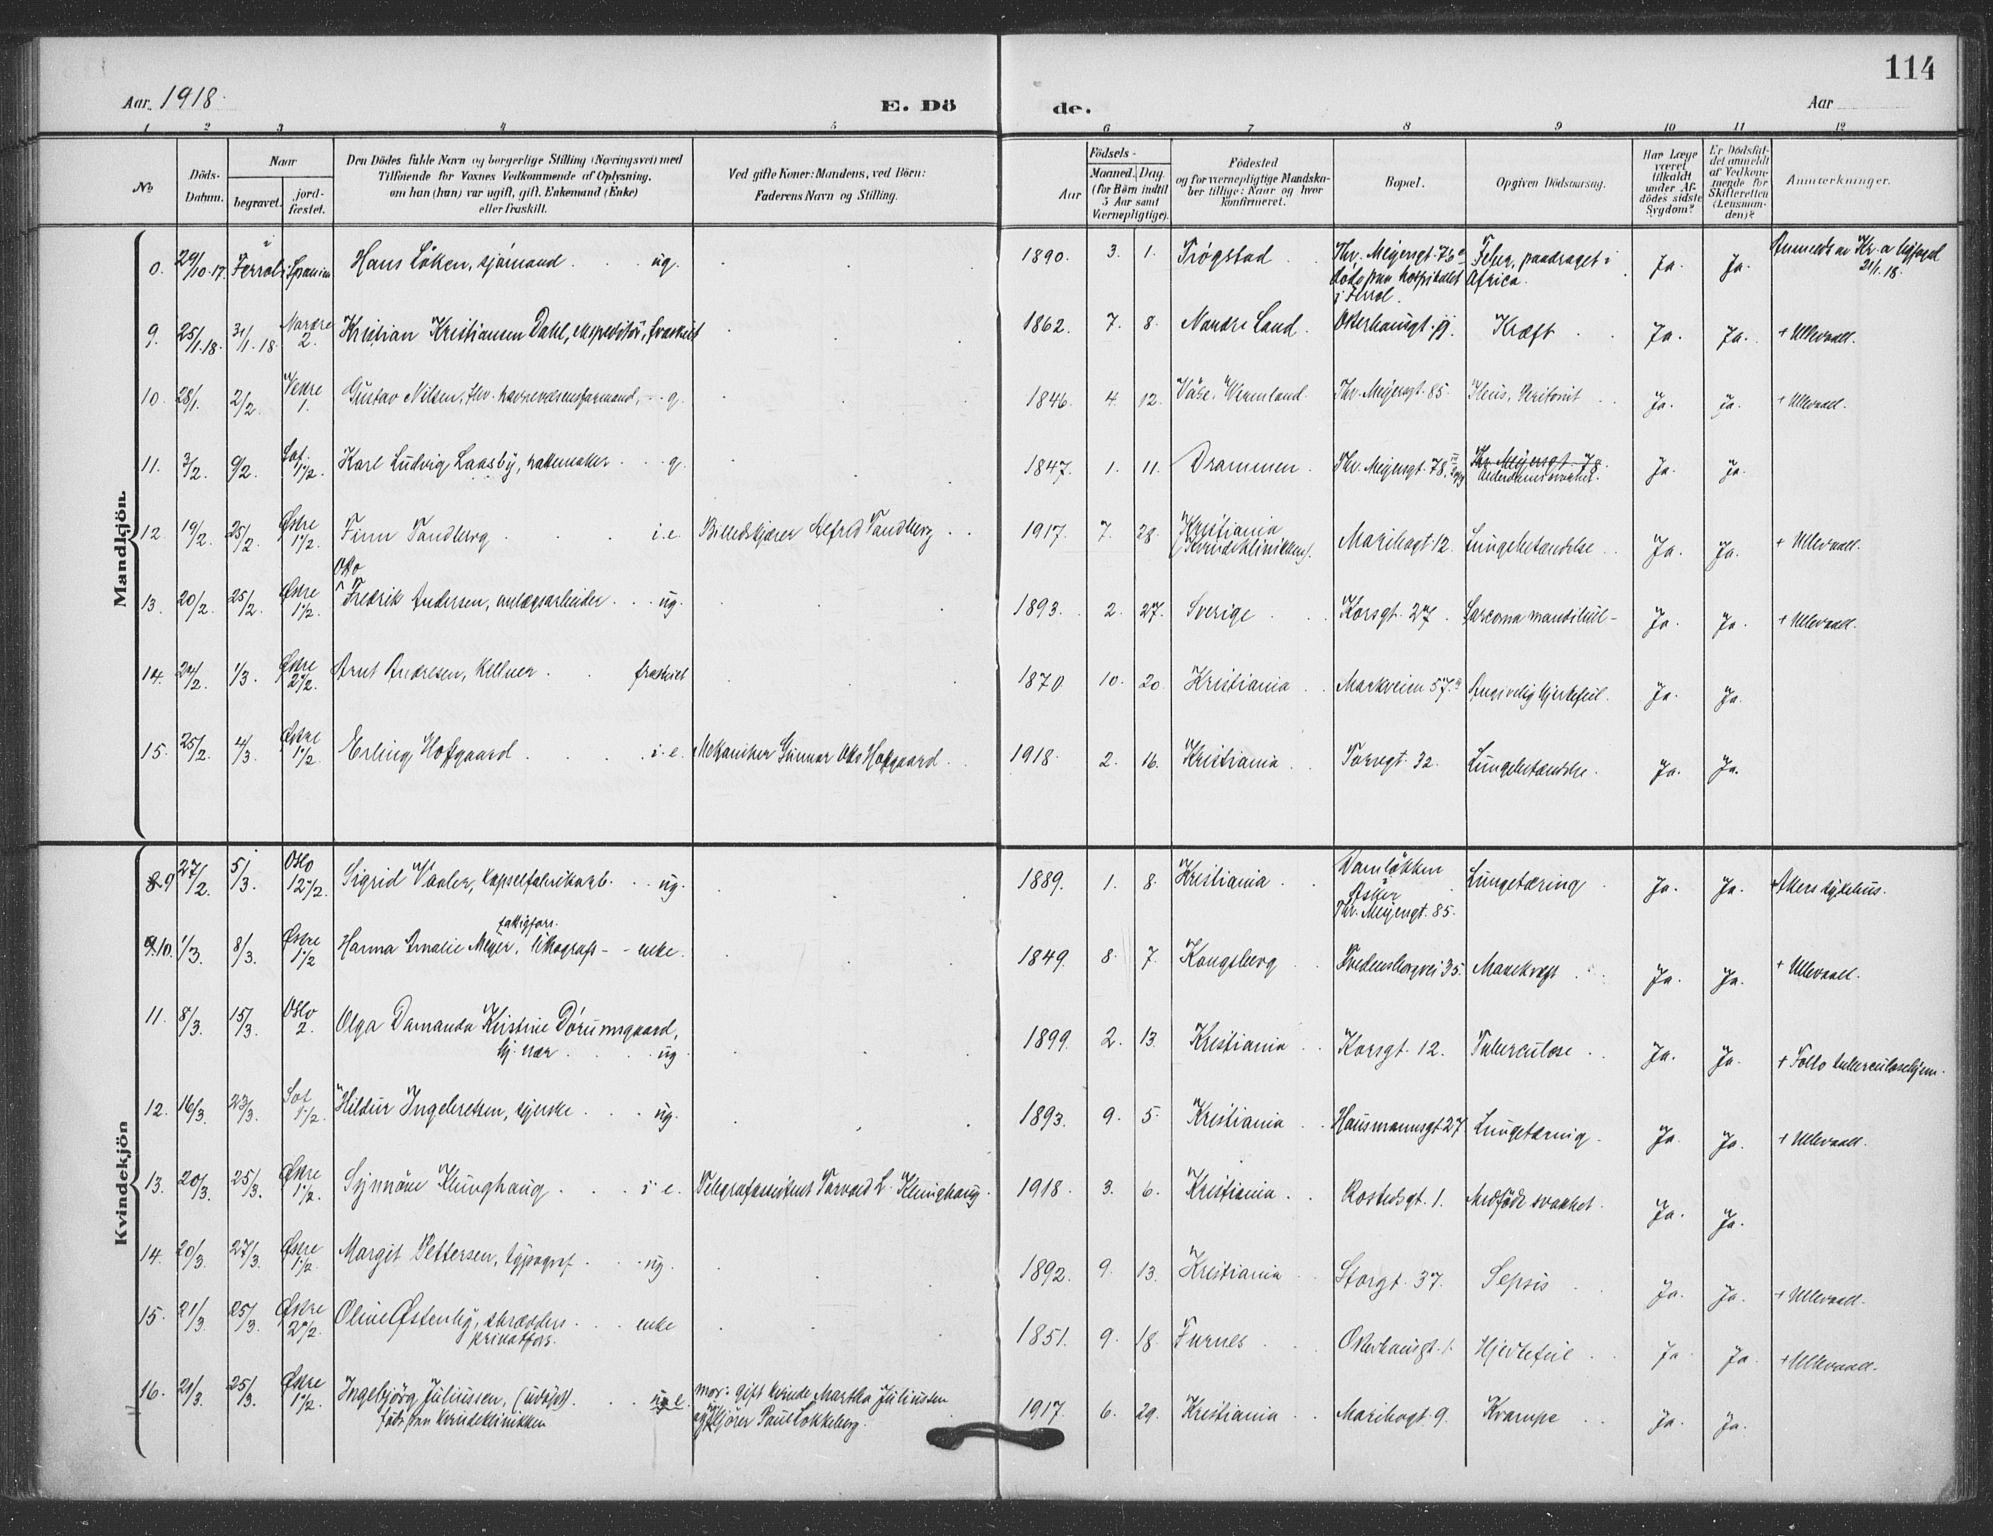 114
Aar. 1918.
E. Dö de.
Aar
1 2 3 4 5 6 7 8 9 10 11 12
No
Döds-Datum.
Naar
begravet.
jord-fæstet.
Den Dödes fulde Navn og borgerlige Stilling (Næringsvei) med
Tilföiende for Voxnes Vedkommende af Oplysning,
om han (hun) var ugift, gift, Enkemand (Enke)
eller fraskilt.
Ved gifte Koner: Mandens, ved Börn:
Faderens Navn og Stilling.
Födsels-
Aar
Maaned. Dag.
(for Börn indtil
5 Aar samt
Værnepligtige).
Födested
og for værnepligtige Mandska-
ber tillige: Naar og hvor
konfirmeret.
Bopæl.
Opgiven Dödsaarsag.
Har Læge
været
tilkaldt
under Af-
dödes sidste
Sygdom?
Er Dödsfal-
det anmeldt
af Vedkom-
mende for
Skifteretten
(Lensman-
den)?
Anmærkninger.
Mandkjön.
0. 29/10.17. Ferrol i Spanien Hans Løken, sjømand ug. 1890. 3. 1. Trøgstad Thr. Meyersgt. 76 a døde paa hospitalet i Ferrol. Feber, paadraget i Africa. Ja. Ja. 21/1.18.
9. 25/1.18. 31/1.18. Nordre 2. Kristian Kristiansen Dahl, ekspeditør, fraskilt 1862. 7. 8. Nordre Land. Osterhausgt. Kræft Ja. Ja. + Ullevaal.
10. 28/1. 2/2. Vestre 1. Gustav Nilsen, fhv. havnevæsensformand, g. 1846. 4. 12. Wermland. Thr. Meyersgt. 85. Ileus, Peritonit Ja. Ja. + Ullevaal.
11. 3/2. 9/2. Sof. 1 1/2. Karl Ludvig Laasby, hattemaker g. 1847. 1. 11. Drammen. Thr. Meyersgt. 78, Thr. Meyersgt. 78. Alderdomssvakhet. Ja. Ja.
12. 19/2. 25/2. Østre 1 1/2. Finn Tandberg i.e. Billedskjærer Alfred Tandberg 1917. 7. 28. Kristiania (Kvindeklinikken). Maribogt. 12. Lungebetændelse Ja. Ja. + Ullevaal.
13. 20/2. 25/2. Østre 1 1/2. Otto Fredrik Andersen, anlægsarbeider ug. 1893. 2. 27. Sverige Korsgt. 27. Sarcoma mandibul- Ja. Ja. + Ullevaal.
14. 24/2. 1/3. Østre 2 1/2. Arnt Andresen, Kellner fraskilt 1870 10. 20. Kristiania Markveien 57. Angivelig hjertefeil. Ja. Ja.
15. 25/2. 4/3. Østre 1 1/2. Erling Hofgaard i.e. Mekaniker Gunnar Otto Hofgaard 1918. 2. 16. Kristiania Torvgt. 32. Lungebetændelse. Ja. Ja.
Kvindekjön
8 9 27/2. 5/3. Oslo 12 1/2. Sigrid Vaaler, kapselfabrikarb. ug. 1889. 1. 8. Kristiania Damløkken Asker Thr. Meyersgt. 85. Lungetæring Ja. Ja. + Akers sykehus.
9 10. 1/3. 8/3. Østre 1 1/2 Hanna Amalie Meyer, fattigfors. litograf- enke. 1849. 8. 7. Kongsberg Fredensborgvei 35. Mavekræft Ja. Ja. + Ullevaal.
11. 8/3. 15/3. Oslo 2. Olga Damanda Kirstine Dørumsgaard, hj. vær. ug. 1899. 2. 13. Kristiania Korsgt. 12. Tuberculose Ja. Ja. + Follo tuberculosehjem.
12. 16/3. 23/3. Sof. 1 1/2. Hildur Ingebretsen, syerske ug. 1893. 9. 5. Kristiania Hausmannsgt. 27 Lungetæring. Ja. Ja. + Ullevaal.
13. 20/3. 25/3. Østre 1 1/2. Synnøve Klunghaug i e. Telegrafassistent Torvald L. Klunghaug. 1918. 3. 6. Kristiania Rostedsgt. 1. Medfødt svakhet. Ja. Ja.
14. 20/3. 27/3. Østre 1 1/2. Margit Pettersen, typograf ug. 1892. 9. 13. Kristiania Storgt. 37. Sepsis Ja. Ja. + Ullevaal.
15. 21/3. 25/3. Østre 2 1/2. Oline Østenby, skrædders privatfors. enke 1851. 9. 18. Furnes Osterhausgt. 1. Hjertefeil Ja Ja. + Ullevaal.
16. 21/3. 25/3. Østre 1 1/2. Ingebjørg Juliussen, (udøpt) født paa kvindeklinikken u.e. mor: gift kvinde Martha Juliussen og Kjører Paul Løkkeberg. 1917. 6. 29. Kristiania Maribogt. 9. Krampe Ja. Ja.